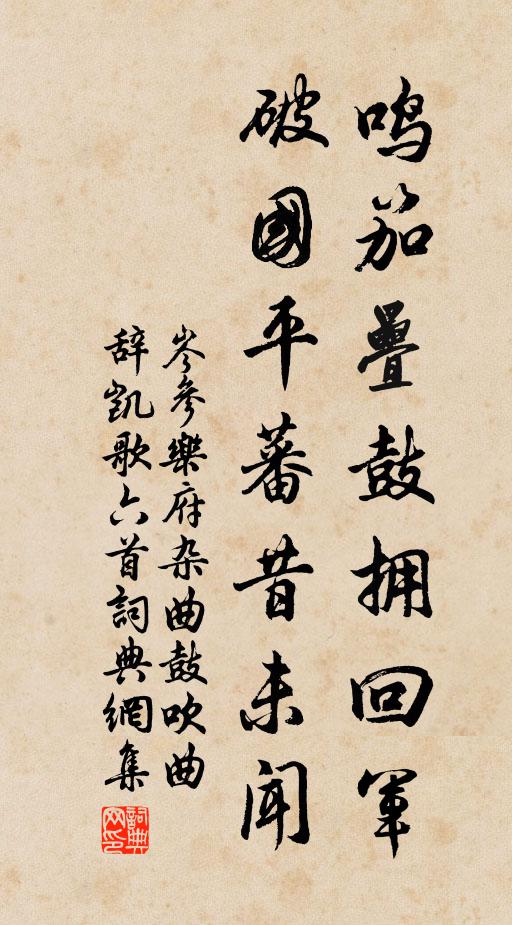 鸣笳疊鼓拥回軍
破國平蕃昔未闻
岑參樂府杂曲鼓吹曲
辞凯歌六首詞典網集
詞典
网印